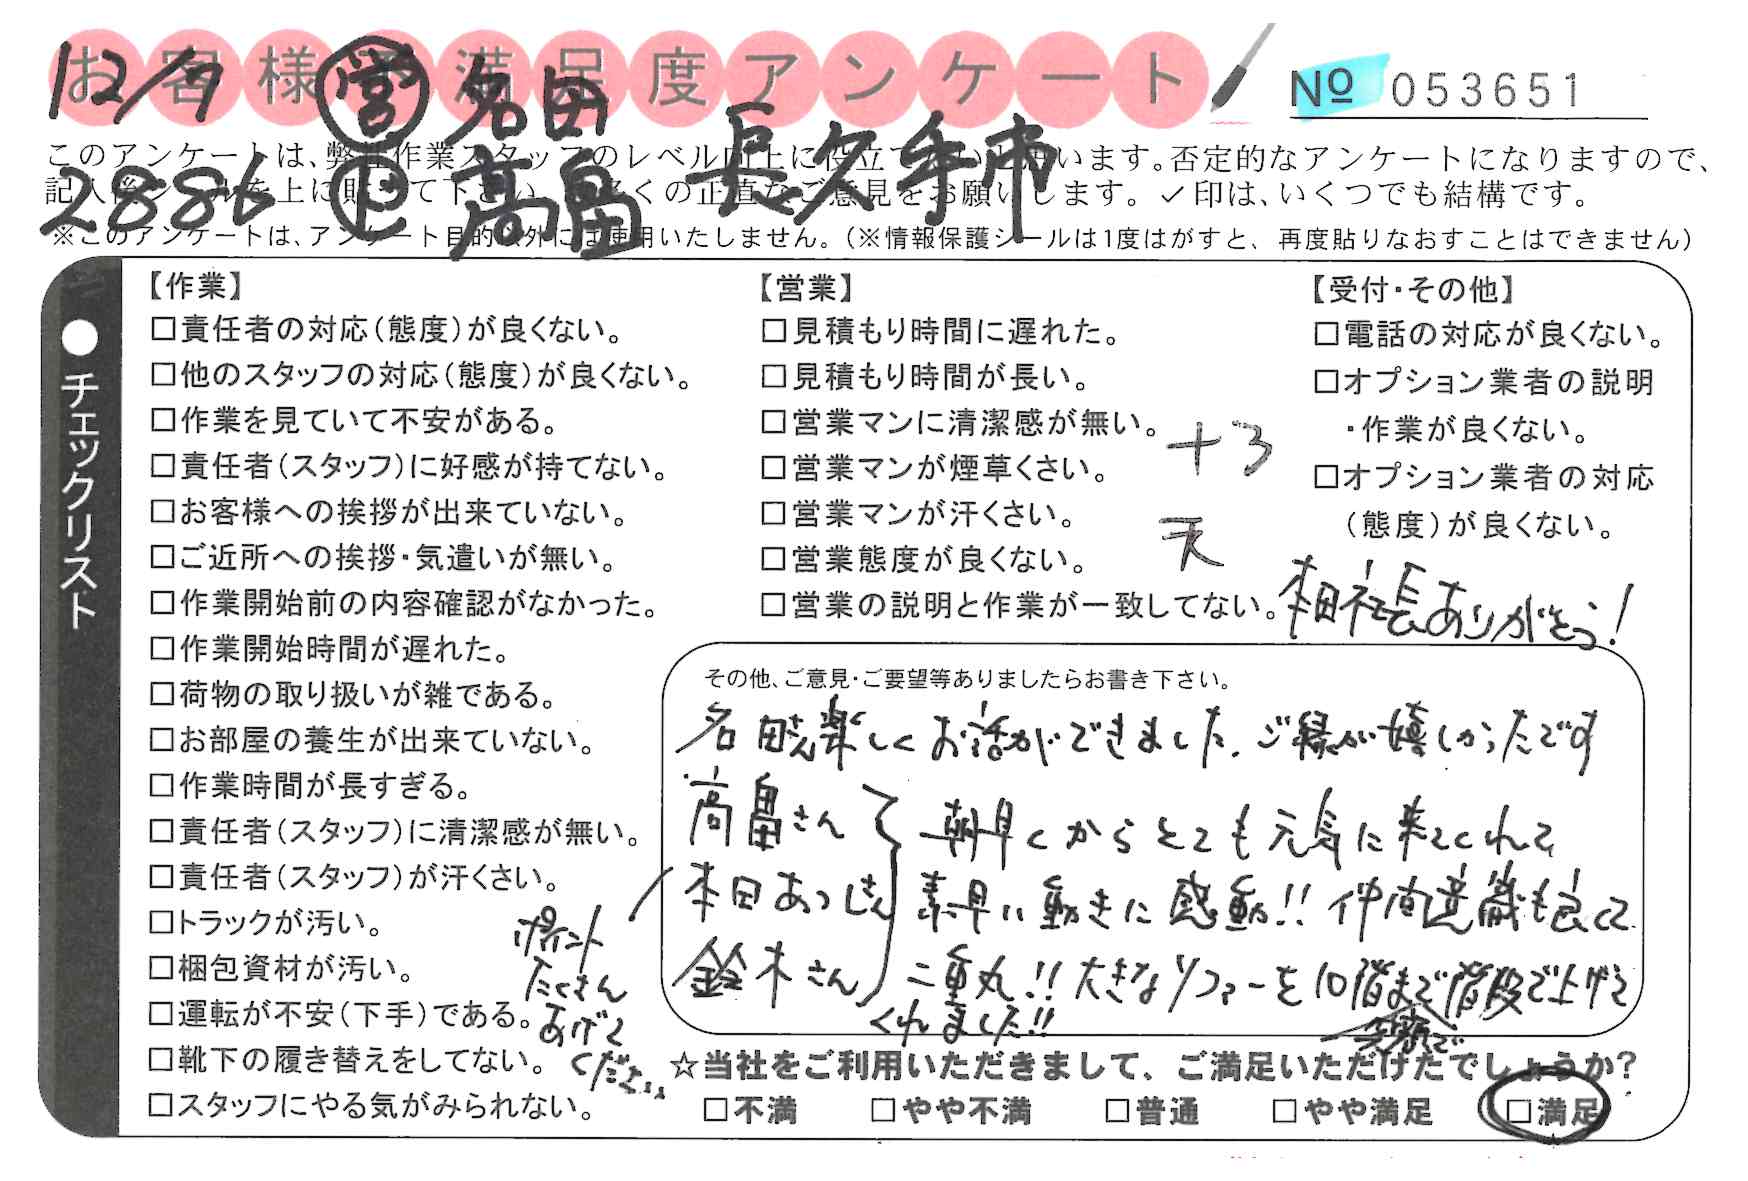 お客様ご満足度アンケート
No 053651
12/7 営 名田
2886 上 高畠 長久手市
このアンケートは、弊社作業スタッフのレベル向上に役立てたいと思います。否定的なアンケートになりますので、
記入後シールを上に貼って下さい。多くの正直なご意見をお願いします。✓印は、いくつでも結構です。
※このアンケートは、アンケート目的以外には使用いたしません。(※情報保護シールは1度はがすと、再度貼りなおすことはできません)
●チェックリスト
【作業】
□責任者の対応(態度)が良くない。
□他のスタッフの対応(態度)が良くない。
□作業を見ていて不安がある。
□責任者(スタッフ)に好感が持てない。
□お客様への挨拶が出来ていない。
□ご近所への挨拶・気遣いが無い。
□作業開始前の内容確認がなかった。
□作業開始時間が遅れた。
□荷物の取り扱いが雑である。
□お部屋の養生が出来ていない。
□作業時間が長すぎる。
□責任者(スタッフ)に清潔感が無い。
□責任者(スタッフ)が汗くさい。
□トラックが汚い。
□梱包資材が汚い。
□運転が不安(下手)である。
□靴下の履き替えをしてない。
□スタッフにやる気がみられない。
【営業】
□見積もり時間に遅れた。
□見積もり時間が長い。
□営業マンに清潔感が無い。
□営業マンが煙草くさい。
□営業マンが汗くさい。
□営業態度が良くない。
□営業の説明と作業が一致してない。
+3
天
【受付・その他】
□電話の対応が良くない。
□オプション業者の説明
・作業が良くない。
□オプション業者の対応
(態度)が良くない。
本田社長ありがとう!
その他、ご意見・ご要望等ありましたらお書き下さい。
名田さん楽しくお話ができました。ご縁が嬉しかったです
高畠さん
本田あつしさん
鈴木さん
朝早くからとても元気に来てくれて
素早い動きに感動!!仲間意識も良くて
二重丸!!大きなソファーを10階まで階段で上げて
笑顔で
くれました!!
ポイント
たくさん
あげて
ください
☆当社をご利用いただきまして、ご満足いただけたでしょうか?
□不満 □やや不満 □普通 □やや満足 □満足